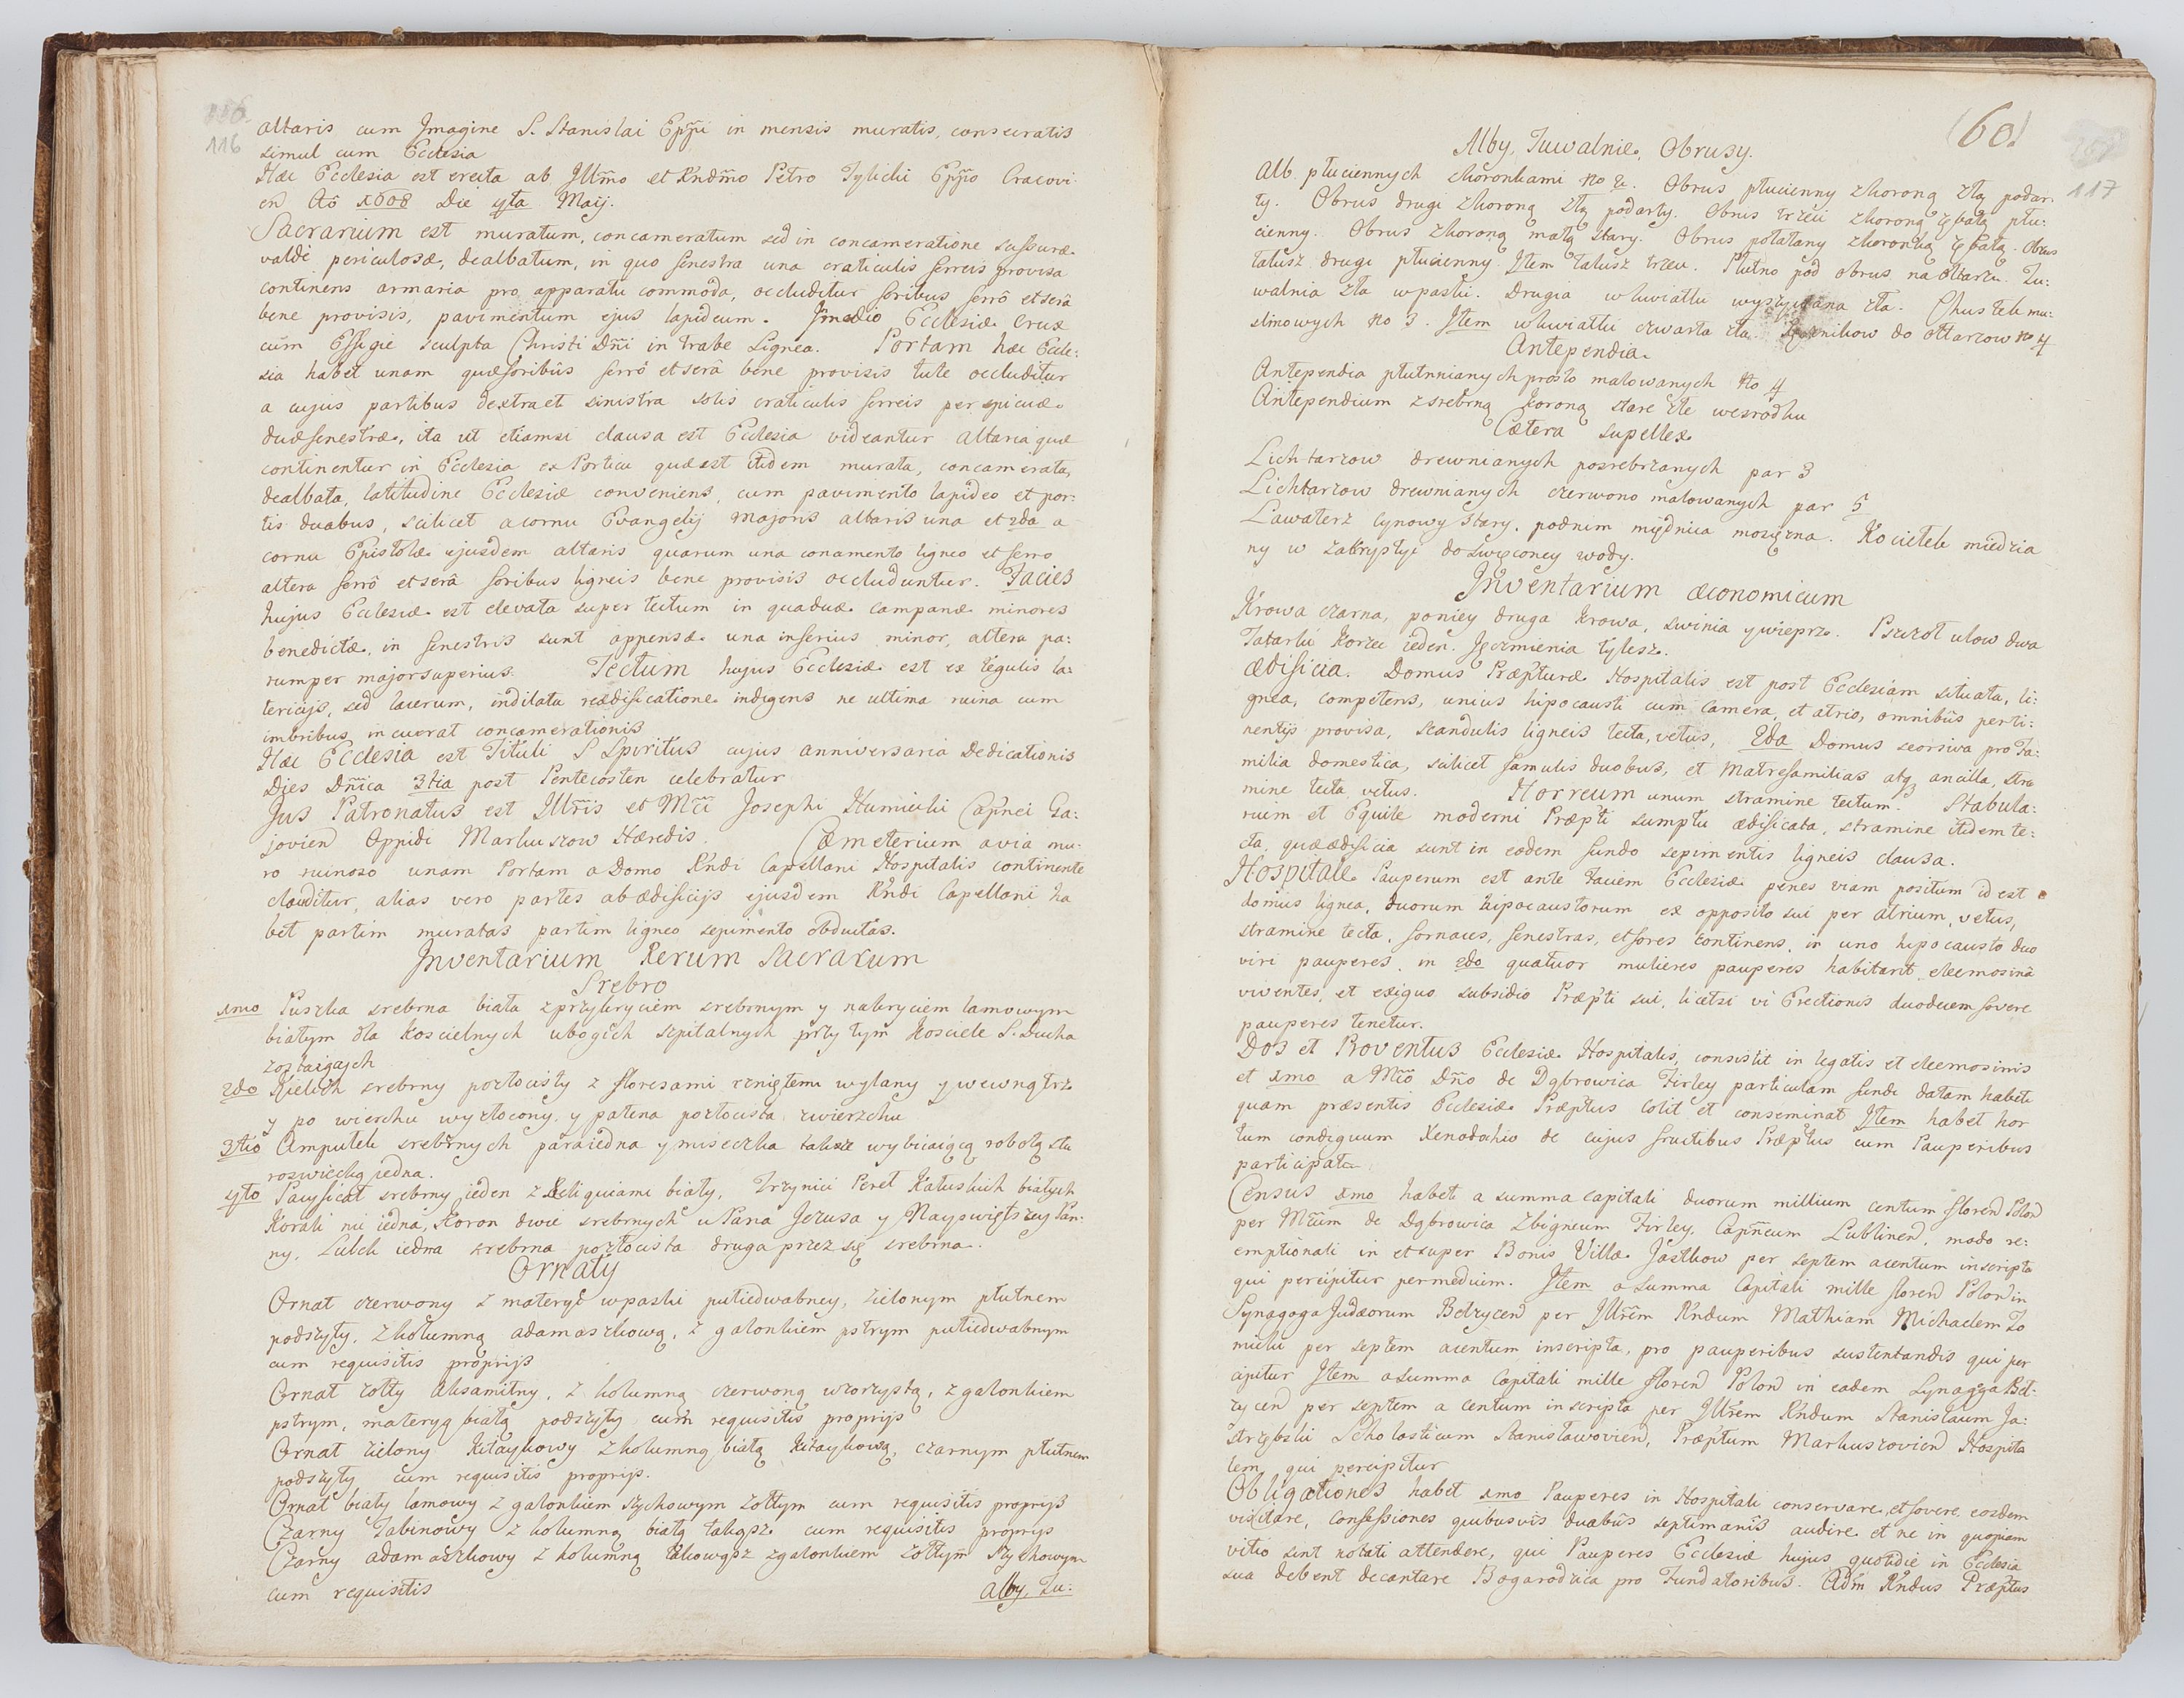 116
altaris cum Imagine S. Stanislai Eppi in mensis muratis, consecratis
simul cum Ecclesia
Hæc Ecclesia est erecta ab Illmo et Rndmo Petro Tylicki Eppo Cracovi
en Aô 1608 Die 4ta Maij.
Sacrarium est muratum, concameratum sed in concameratione scissuræ
valde periculosæ, dealbatum, in quo fenestra una craticulis ferreis provisa
continens armaria pro apparatu commoda, occluditur foribus ferrô et serâ
bene provisis, pavimentum ejus lapideum. In medio Ecclesiæ Crux
cum Effigie sculpta Christi Dñi in trabe Lignea. Portam hæc Eccle:
sia habet unam quæ foribus ferrô et serâ bene provisis tute occluditur
a cujus partibus dextra et sinistra solis craticulis ferreis perspicuæ
duæ fenestræ, ita ut etiamsi clausa est Ecclesia videantur altaria quæ
continentur in Ecclesia ex Porticu quæ est itidem murata, concamerata,
dealbata, latitudine Ecclesiæ conveniens, cum pavimento lapideo et por:
tis duabus, scilicet a cornu Evangelij Majoris altaris una et 2da a
cornu Epistolæ ejusdem altaris quarum una conamento ligneo et ferro
altera ferrô et serâ foribus ligneis bene provisis occluduntur. Facies
hujus Ecclesiæ est elevata super tectum in qua duæ campanæ minores
benedictæ, in fenestris sunt appensæ una inferius minor, altera pa:
rumper major superius. Tectum hujus Ecclesiæ est ex tegulis la:
tericijs, sed lacerum, indilata reædificatione indigens ne ultima ruina cum
imbribus incuerat concamerationis
Hæc Ecclesia est Tituli S Spiritus cujus anniversaria Dedicationis
Dies Dñica 3tia post Pentecosten celebratur
Jus Patronatus est Illris et Mci Josephi Humiecki Capnei Ga:
jovien Oppidi Markuszow Hæredis. Cæmeterium a via mu:
ro ruinoso unam Portam a Domo Rndi Capellani Hospitalis continente
clauditur, alias vero partes ab ædificijs ejusdem Rndi Capellani ha
bet partim muratas partim ligneo sepimento obductas.
Inventarium Rerum Sacrarum
Srebro
1mo Puszka srebrna biała z przykryciem srebrnym y nakryciem lamowym
białym dla koscielnych ubogich szpitalnych przy tym kosciele S. Ducha
zostaiących
2do Kielich srebrny pozłocisty z floresami rzniętemi wylany y wewnątrz
y po wierzchu wyzłocony. y patena pozłocista zwierzchu
3tio Ampułek srebrnych para iedna y miseczka takaz wybiiaiącą robotą sta
roswiecką iedna.
4to Pacyficał srebrny ieden z Reliquiami biały, Trzy nici Pereł Kałuskich białych
Korali nic iedna, Koron dwie srebrnych u Pana Jezusa y Nayswiętszey Pan:
ny, Lulek iedna srebrna pozłocista druga przez się srebrna.
Ornaty
Ornat czerwony z materyi w paski puliedwabney, zielonym płutnem
podszyty, z kolumną adamaszkową, z galonkiem pstrym puliedwabnym
cum requisitis proprijs
Ornat zołty Aksamitny, z kolumną czerwoną wzorzystą, z galonkiem
pstrym, materyą białą podszyty cum requisitis proprijs
Ornat zielony Kitaykowy z kolumną białą Kitaykową, czarnym płutnem
podszyty cum requisitis proprijs.
Ornat biały lamowy z galonkiem szychowym zołtym cum requisitis proprijs
Czarny Tabinowy z kolumną białą takąsz cum requisitis proprijs
Czarny adamaszkowy z kolumną takowąsz z galonkiem zołtym szychowym
cum requisitis
Alby, Tu:
(60)
117
Alby, Tuwalnie, Obrusy.
Alb płuciennych z koronkami No 2. Obrus płucienny z koroną złą podar:
ty. Obrus drugi z koroną złą podarty. Obrus trzeci z koroną ząbatą płu:
cienny. Obrus z koroną małą stary. Obrus połatany z koronką ząbatą. Obrus
tałusz drugi płucienny. Item tałusz trzeci. Płutno pod obrus na ołtarzu. Tu:
walnia zła w paski. Drugia w kwiatki wyszywana zła. Chustek mu:
slinowych No 3. Item w kwiatki czwarta zła. do ołtarzow No 4
Antependia
Antependia płutnianych prosto malowanych No 4
Antependium z srebrną koroną stare złe wesrodku
Cætera supellex
Lichtarzow drewnianych posrebrzanych par 3
Lichtarzow drewnianych czerwono malowanych par 5
Lawaterz cynowy stary. pod nim międnica mosięzna. Kociełek miedzia
ny w zakrystyi do swięconey wody.
Inventarium œconomicum
Krowa czarna, poniey druga krowa, swinia y wieprz. Pszczoł ulow dwa
Tatarki korzec ieden. Jęczmienia tylesz.
Ædificia. Domus Præpturæ Hospitalis est post Ecclesiam situata, li:
gnea, competens, unius hipocausti cum camera, et atrio, omnibus perti:
nentijs provisa, scandulis ligneis tecta, vetus, 2da Domus seorsiva pro Fa:
milia domestica, scilicet famulis duobus, et Matrefamilias atq ancilla, stra
mine tecta vetus. Horreum unum stramine tectum. Stabula:
rium et Equile moderni Præpti sumptu ædificata, stramine itidem te:
cta, quæ ædificia sunt in eodem fundo sepimentis ligneis clausa.
Hospitale Pauperum est ante faciem Ecclesiæ penes viam positum id est
domus lignea, duorum hipocaustorum ex opposito sui per atrium, vetus,
stramine tecta, fornaces, fenestras, et fores continens, in uno hipocausto duo
viri pauperes, in 2do quatuor mulieres pauperes habitant eleemosina
viventes, et exiguo subsidio Præpti sui, licet si vi Erectionis duodecim fovere
pauperes tenetur.
Dos et Proventus Ecclesiæ Hospitalis, consistit in legatis et eleemosinis
et 1mo a Mco Dño de Dąbrowica Firley particulam fundi datam habet
quam præsentis Ecclesiæ Præptus colit et conseminat Item habet hor
tum condiguum Xenodochio de cujus fructibus Præptus cum Pauperibus
participat
Census 1mo habet a summa capitali duorum millium centum floren Polon
per Mcum de Dąbrowica Zbigneum Firley, Capneum Lublinen, modo re:
emptionali in et super Bonis Villæ Jastkow per septem a centum inscripta
qui percipitur per medium. Item a summa Capitali mille floren Polon in
Synagoga Judæorum Bełzycen per Illrem Rndum Mathiam Michaelem Zo
micki per septem a centum inscripta, pro pauperibus sustentandis qui per
cipitur Item a summa Capitali mille floren Polon in eadem Synagoga Beł:
zycen per septem a centum inscripta per Illrem Rndum Stanislaum Ja:
strzębski Scholasticum Stanislawovien, Præptum Markuszovien Hospita
lem qui percipitur
Obligationes habet 1mo Pauperes in Hospitali conservare, et fovere eosdem
visitare, Confessiones quibusvis duabus septimanis audire et ne in quopiam
vitio sint notati attendere, qui Pauperes Ecclesiæ hujus quotidie in Ecclesia
sua debent decantare Bogarodzica pro Fundatoribus. Adm Rndus Præptus